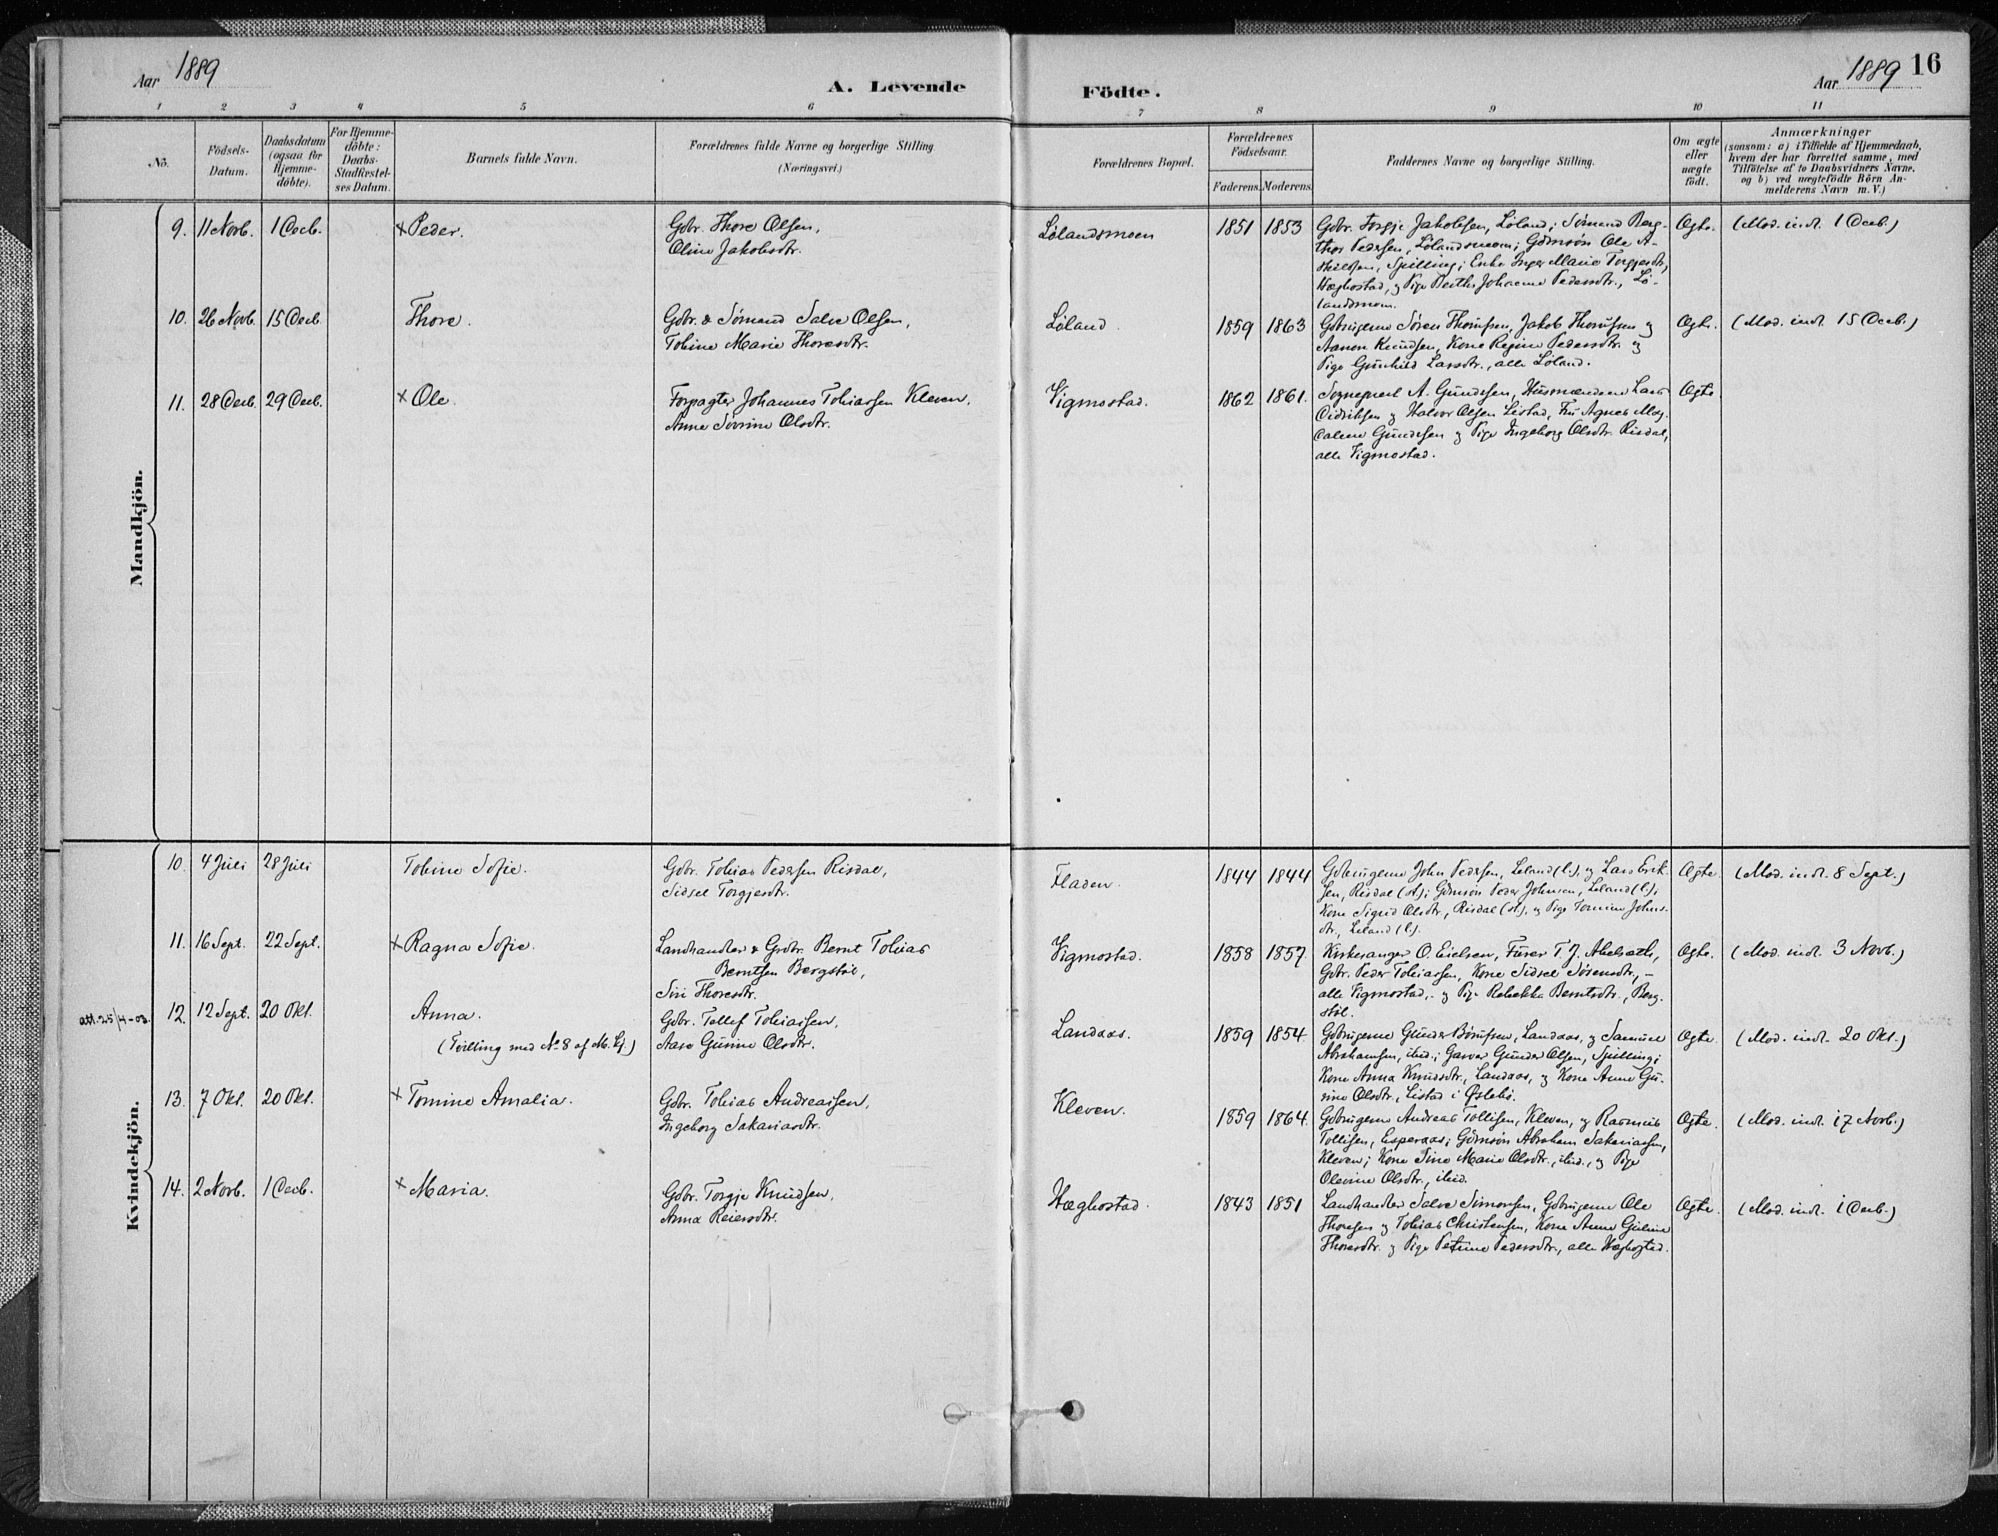 Aar 1889
A. Levende
Födte.
Aar 1889 16
1 2 3 4 5 6 7 8 9 10 11
No.
Födsels-
Datum.
Daabsdatum
(ogsaa for
Hjemme-
döbte).
For Hjemme-
döbte:
Daabs-
Stadfæstel-
ses Datum.
Barnets fulde Navn.
Forældrenes fulde Navne og borgerlige Stilling.
(Næringsvei.)
Forældrenes Bopæl.
Forældrenes
Födselsaar.
Faderens. Moderens.
Faddernes Navne og borgerlige Stilling.
Om ægte
eller
uægte
födt.
Anmærkninger
(saasom: a) i Tilfælde af Hjemmedaab,
hvem der har forrettet samme, med
Tilföielse af to Daabsvidners Navne.
og b) ved uægtefödte Börn An-
melderens Navn m. V.)
Mandkjön.
9. 11 Novb. 1 Decb. × Peder.
Gdbr. Thore Olsen,
Oline Jakobsdtr.
Lølandsmoen 1851 1853
Gdbr. Torgje Jakobsen, Løland; Sømand Berg-
thor Pedersen, Lølandsmoen; Gdmsøn Ole A-
Spilling; Enke Inger Marie Torgjesdtr,
Hæghostad, og Pige Berthe Johanne Pedersdtr., Lø-
landsmoen.
Ægte. (Mod. indl. 1 Decb.)
10. 26 Novb. 15 Decb. Thore.
Gdbr. & Sømand Salve Olsen,
Tobine Marie Thoresdtr.
Løland. 1859 1863
Gdbrugerne Søren Thomsen, Jakob Thomsen og
Aanon Knudsen, Kone Regine Pedersdtr. og
Pige Gunhild Larsdtr., alle Løland.
Ægte. (Mod. indl. 15 Decb.)
11. 28 Decb. 29 Decb. × Ole.
Forpagter Johannes Tobiassen Kleven,
Anne Sevrine Olsdtr.
Vigmostad. 1862 1861.
Sogneprest A. Gundersen, Husmændene Lars
Didriksen og Halvor Olsen Listad, Fru Agnes Mag-
dalene Gundersen og Pige Ingeborg Olsdtr. Risdal,
alle Vigmostad.
Ægte
Kvindekjön.
10. 4 Juli 28 Juli Tobine Sofie.
Gdbr. Tobias Pedersen Risdal,
Sidsel Torgjesdtr.
Fladen. 1844 1844
Gdbrugerne John Pedersen, Leland (l.), og Lars Erik-
sen, Risdal (st); Gdmsøn Peder Johnsen, Leland (l);
Kone Sigrid Olsdtr., Risdal (st), og Pige Tomine Johns-
dtr, Leland (l).
Ægte (Mod. indl. 8 Sept.)
11. 16 Sept. 22 Sept. × Ragna Sofie.
Landhandler & Grdbr. Bernt Tobias
Berntsen Bergstøl,
Siri Thoresdtr.
Vigmostad. 1858 1857.
Kirkesanger O. Eielsen, Furer T. J. Abelsæth,
Gdbr. Peder Tobiassen, Kone Sidsel Sørensdtr., -
alle Vigmostad, og Pige Rebekka Berntsdtr., Berg-
støl.
Ægte. (Mod. indl. 3 Novb.)
att. 25/4-03. 12. 12 Sept. 20 Okt. Anna.
(Tvilling med No 8 af M. Kj.)
Gdbr. Tellef Tobiassen,
Aase Gurine Olsdtr.
Landaas. 1859 1854.
Gdbrugerne Gunder Børufsen, Landaas, og Samuel
Abrahamsen, ibid.; Garver Gunder Olsen, Spilling;
Kone Anna Knudsdtr., Landaas, og Kone Anne Gu-
rine Olsdtr., Listad i Øslebø.
Ægte. (Mod. indl. 20 Okt.)
13. 7 Okt. 20 Okt. × Tomine Amalia.
Gdbr. Tobias Andreassen,
Ingeborg Sakariasdtr.
Kleven. 1859 1864.
Gdbrugerne Andreas Tollisen, Kleven, og Rasmus
Tollisen, Esperaas; Gdmsøn Abraham Sakariassen,
Kleven; Kone Sine Marie Olsdtr., ibid., og Pige
Olevine Olsdtr., ibid.
Ægte. (Mod. indl. 17 Novb.)
14. 2 Novb. 1 Decb. × Maria.
Gdbr. Torgje Knudsen,
Anna Reiersdtr.
Hæghostad. 1843 1851
Landhandler Salve Simonsen, Gdbrugerne Ole
Thoresen og Tobias Christensen, Kone Anne Guline
Thoresdtr. og Pige Petrine Pedersdtr., alle Hæghostad.
Ægte. (Mod. indl. 1 Decb.)